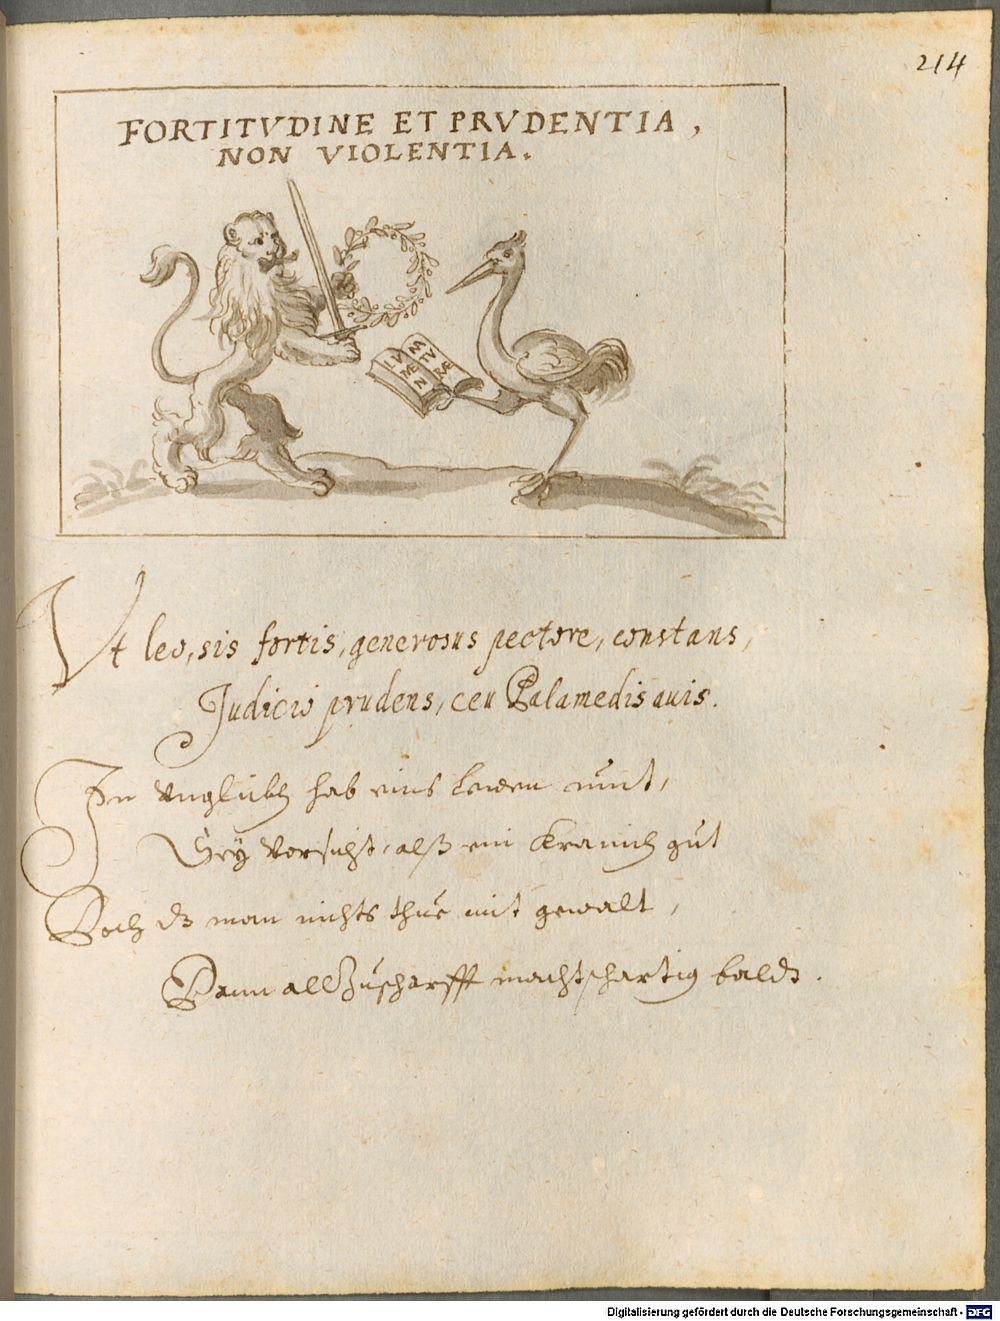 214
FORTITVDINE ET PRVDENTIA,
NON VIOLENTIA.
LV NA
ME TV
N RÆ
Vt leo, sis fortis, generosus pectore, constans,
Judicio prudens, ceu Palamedis auis.
In Vnglückh hab eins Lewen mut,
Sey Vorsicht, alß ein Kranich gut
Doch dz man nichts thue mit gewalt,
Dann all Zuscharff macht schartig baldt.
Digitalisierung gefördert durch die Deutsche Forschungsgemeinschaft - DFG